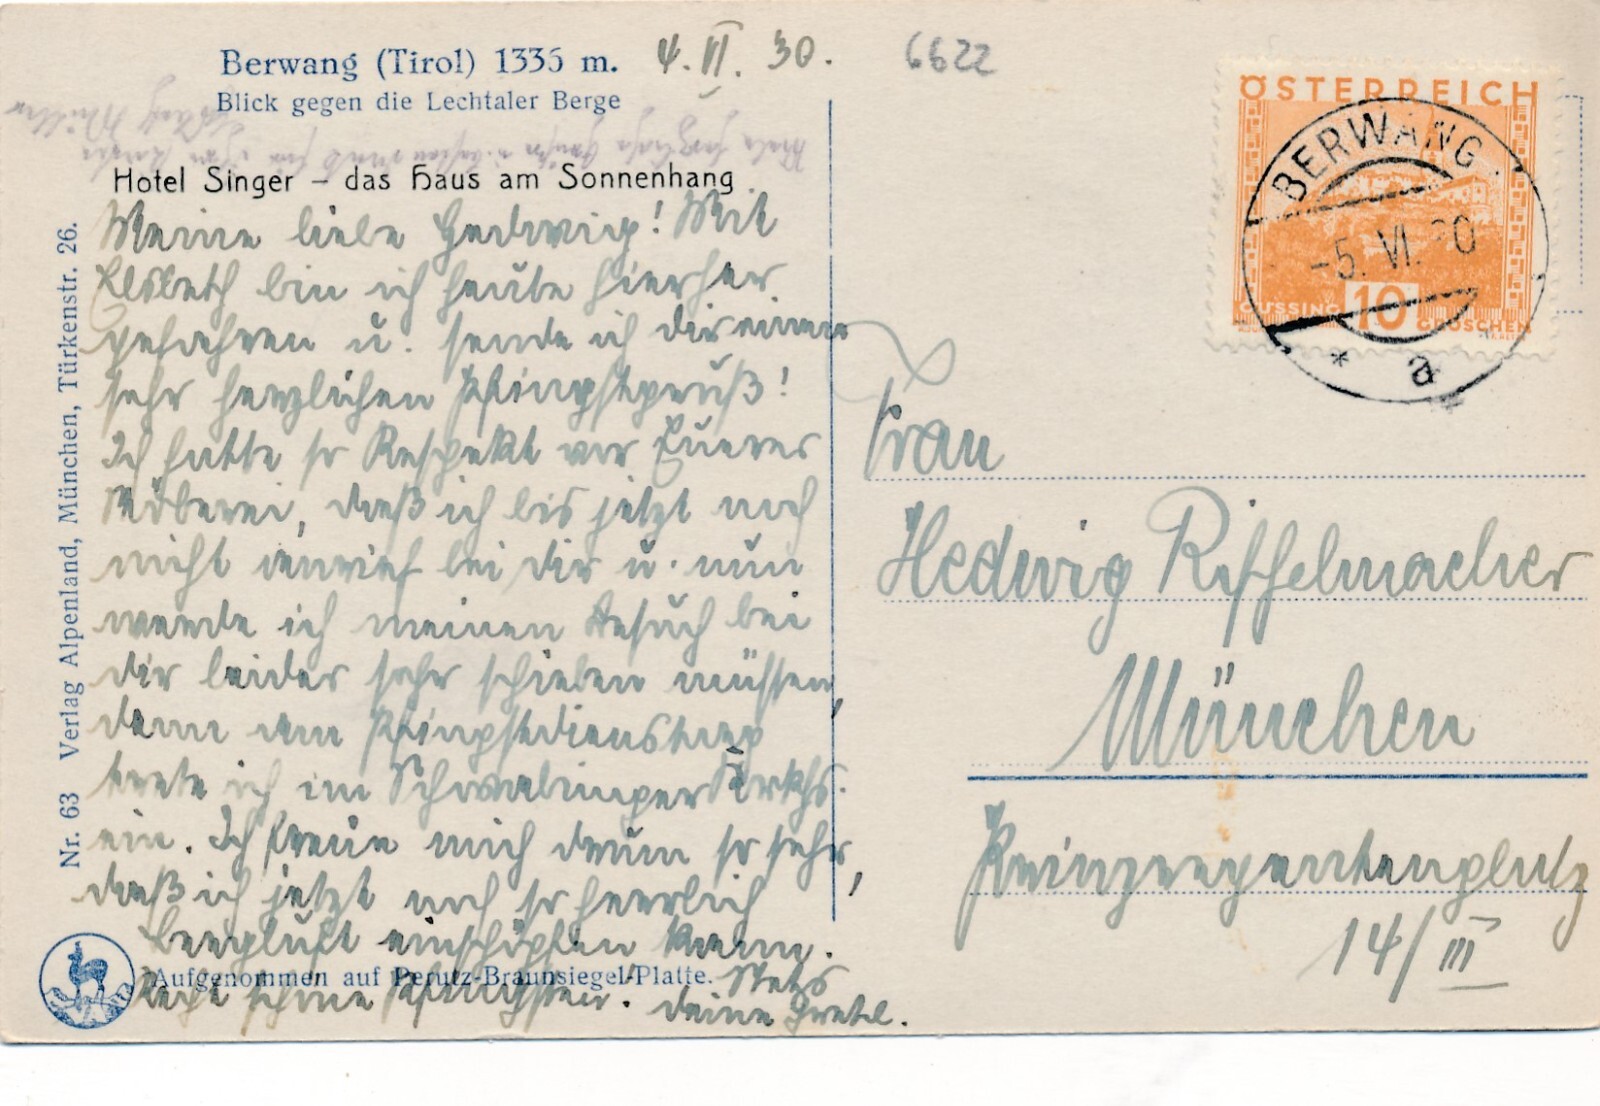 Berwang (Tirol) 1336 m. 4. VI. 30. 6622
Blick gegen die Lechtaler Berge
Hotel Singer – das Haus am Sonnenhang
Meine liebe Hedwig! Mit
Elsbeth bin ich heute hierher
gefahren u. sende ich dir einen
sehr herzlichen Pfingstgruß!
Ich hatte so Respekt vor Euerer
Stöberei, daß ich bis jetzt noch
nicht anrief bei dir u. nun
werde ich meinen Besuch bei
dir leider sehr schieben müssen,
denn am Pfingstdienstag
trete ich im Schwabinger Krkhs.
ein. Ich freue mich drum so sehr,
daß ich jetzt noch so herrlich
Bergluft einschöpfen kann.
Recht schöne Pfingsten. Stets
deine Gretl.
Aufgenommen auf Perutz-Braunsiegel-Platte.
Nr. 63 Verlag Alpenland, München, Türkenstr. 26.
ÖSTERREICH
GÜSSING 10 GROSCHEN
BERWANG
-5. VI. 30
* a
Frau
Hedwig Riffelmacher
München
Prinzregentenplatz
14/III